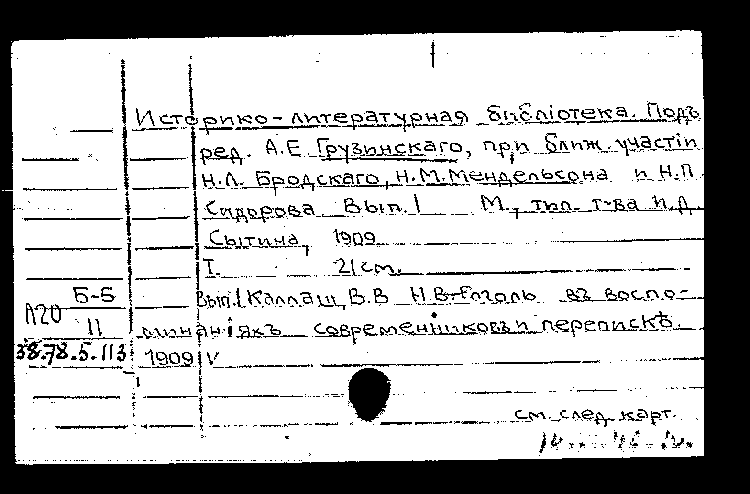 Историко-литературная библіотека. Подъ
ред. А.Е Грузинскаго, при ближ. участіи
Н.Л. Бродскаго, Н.М. Мендельсона и Н.П.
Сидорова Вып. I М., тип. т-ва И.Д.
Сытина, 1909
Т. 21 см.
Б-Б Вып. I Каллаш, В.В Н.В. Гоголь въ воспо-
А20
II минаніяхъ современниковъ и перепискѣ.
38.78.5.113 1909 V
см. след. карт.